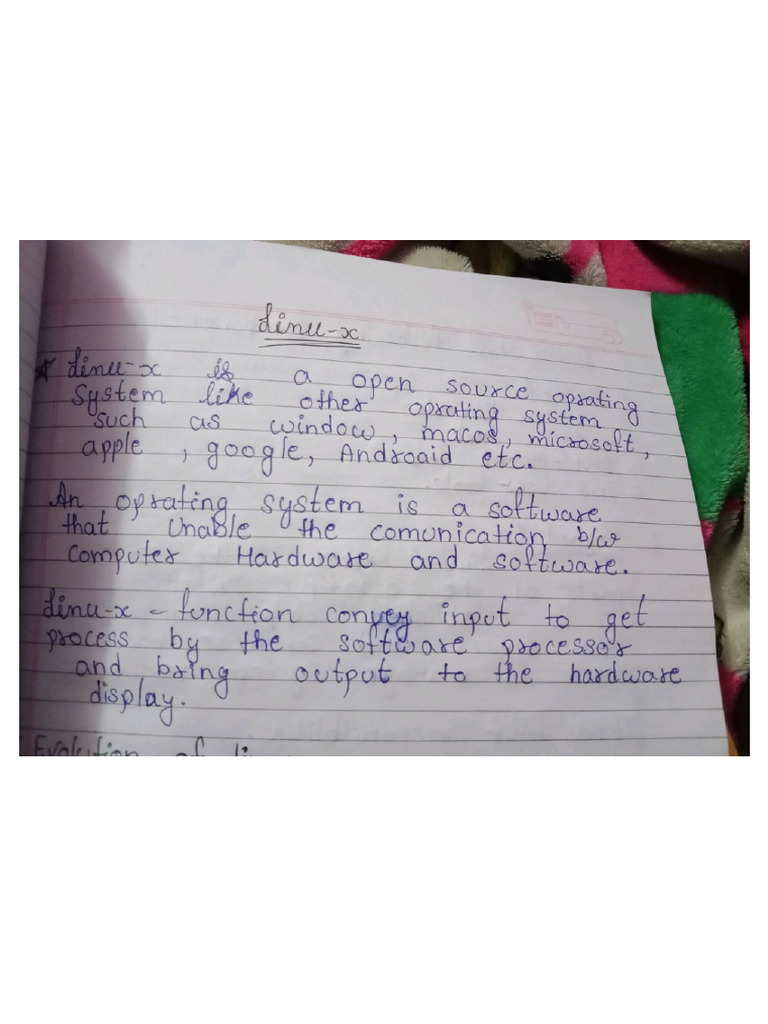 Linu-x
* Linu-x is a open source oprating
system like other oprating system
such as window, macos, microsoft,
apple, google, Androaid etc.
An oprating system is a software
that Unable the comunication b/w
computer Hardware and software.
Linu-x - function convey input to get
process by the software processor
and bring output to the hardware
display.
Evolution of